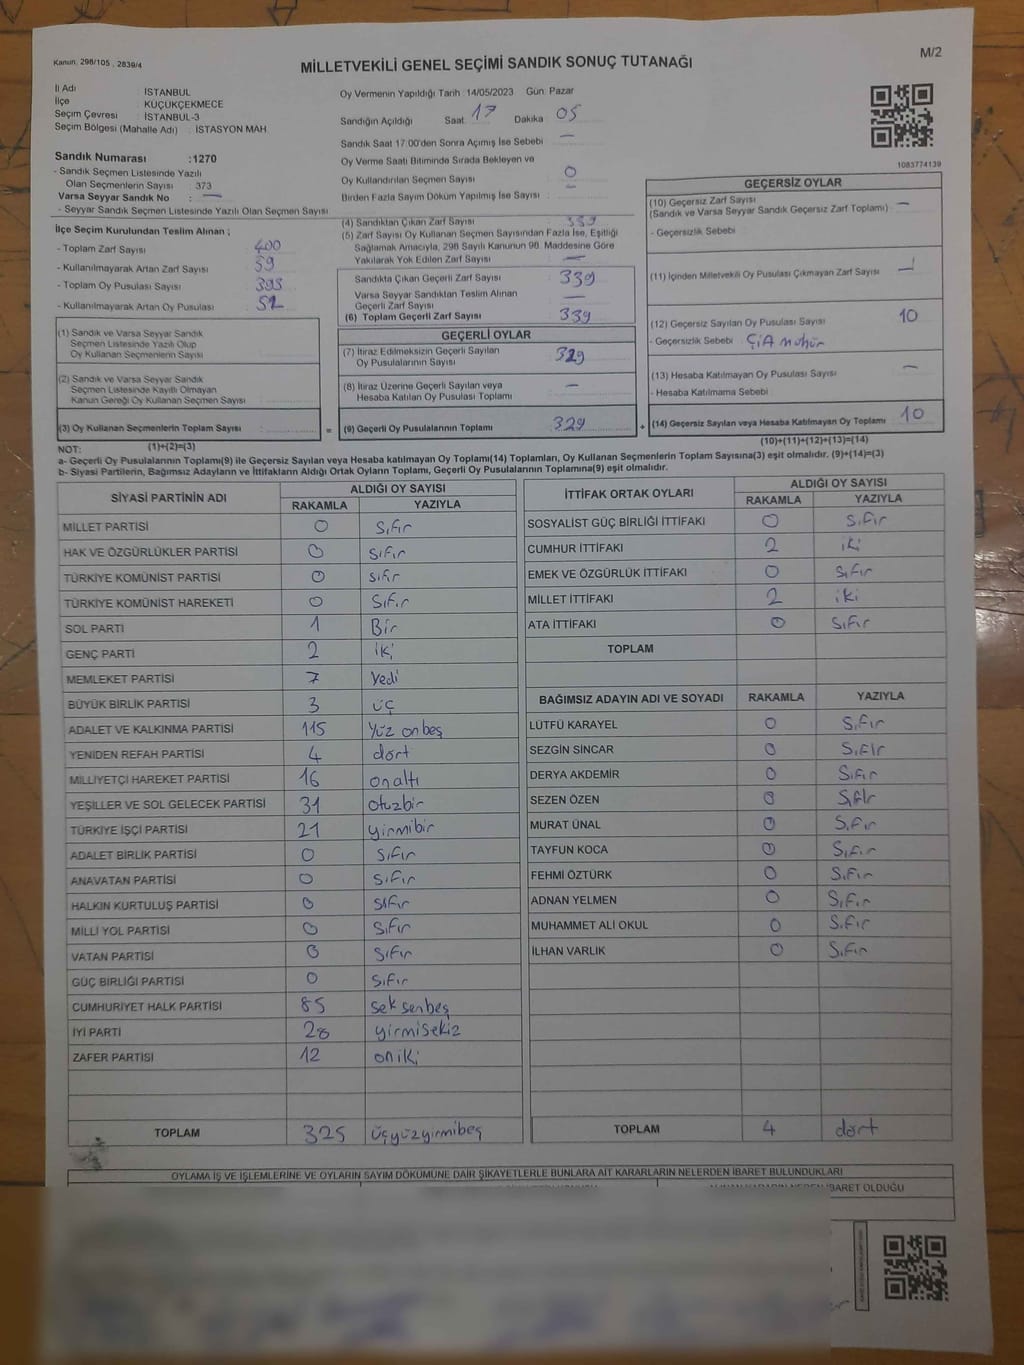 Kanun, 298/105 , 2839/4
M/2
MİLLETVEKİLİ GENEL SEÇİMİ SANDIK SONUÇ TUTANAĞI
İl Adı : İSTANBUL
İlçe : KÜÇÜKÇEKMECE
Seçim Çevresi : İSTANBUL-3
Seçim Bölgesi (Mahalle Adı) : İSTASYON MAH.
Oy Vermenin Yapıldığı Tarih :14/05/2023 Gün: Pazar
Sandığın Açıldığı Saat: 17 Dakika 05
Sandık Saat 17:00'den Sonra Açılmış İse Sebebi : —
Oy Verme Saati Bitiminde Sırada Bekleyen ve
Oy Kullandırılan Seçmen Sayısı : 0
Birden Fazla Sayım Döküm Yapılmış İse Sayısı : —
1083774139
Sandık Numarası :1270
- Sandık Seçmen Listesinde Yazılı
Olan Seçmenlerin Sayısı : 373
Varsa Seyyar Sandık No : —
- Seyyar Sandık Seçmen Listesinde Yazılı Olan Seçmen Sayısı :
İlçe Seçim Kurulundan Teslim Alınan ;
- Toplam Zarf Sayısı : 400
- Kullanılmayarak Artan Zarf Sayısı : 59
- Toplam Oy Pusulası Sayısı : 393
- Kullanılmayarak Artan Oy Pusulası : 52
(4) Sandıktan Çıkan Zarf Sayısı : 339
(5) Zarf Sayısı Oy Kullanan Seçmen Sayısından Fazla İse, Eşitliği
Sağlamak Amacıyla, 298 Sayılı Kanunun 98. Maddesine Göre
Yakılarak Yok Edilen Zarf Sayısı : —
Sandıkta Çıkan Geçerli Zarf Sayısı : 339
Varsa Seyyar Sandıktan Teslim Alınan
Geçerli Zarf Sayısı : —
(6) Toplam Geçerli Zarf Sayısı : 339
GEÇERLİ OYLAR
(7) İtiraz Edilmeksizin Geçerli Sayılan
Oy Pusulalarının Sayısı : 329
(8) İtiraz Üzerine Geçerli Sayılan veya
Hesaba Katılan Oy Pusulası Toplamı : —
(9) Geçerli Oy Pusulalarının Toplamı : 329
GEÇERSİZ OYLAR
(10) Geçersiz Zarf Sayısı : —
(Sandık ve Varsa Seyyar Sandık Geçersiz Zarf Toplamı)
- Geçersizlik Sebebi :
(11) İçinden Milletvekili Oy Pusulası Çıkmayan Zarf Sayısı :
(12) Geçersiz Sayılan Oy Pusulası Sayısı : 10
- Geçersizlik Sebebi :
(13) Hesaba Katılmayan Oy Pusulası Sayısı : —
- Hesaba Katılmama Sebebi :
(14) Geçersiz Sayılan veya Hesaba Katılmayan Oy Toplamı : 10
(1) Sandık ve Varsa Seyyar Sandık
Seçmen Listesinde Yazılı Olup
Oy Kullanan Seçmenlerin Sayısı :
(2) Sandık ve Varsa Seyyar Sandık
Seçmen Listesinde Kayıtlı Olmayan
Kanun Gereği Oy Kullanan Seçmen Sayısı :
(3) Oy Kullanan Seçmenlerin Toplam Sayısı :
= +
NOT: (1)+(2)=(3) (10)+(11)+(12)+(13)=(14)
a- Geçerli Oy Pusulalarının Toplamı(9) ile Geçersiz Sayılan veya Hesaba katılmayan Oy Toplamı(14) Toplamları, Oy Kullanan Seçmenlerin Toplam Sayısına(3) eşit olmalıdır. (9)+(14)=(3)
b- Siyasi Partilerin, Bağımsız Adayların ve İttifakların Aldığı Ortak Oyların Toplamı, Geçerli Oy Pusulalarının Toplamına(9) eşit olmalıdır.
SİYASİ PARTİNİN ADI ALDIĞI OY SAYISI
RAKAMLA YAZIYLA
MİLLET PARTİSİ 0 Sıfır
HAK VE ÖZGÜRLÜKLER PARTİSİ 0 Sıfır
TÜRKİYE KOMÜNİST PARTİSİ 0 Sıfır
TÜRKİYE KOMÜNİST HAREKETİ 0 Sıfır
SOL PARTİ 1 Bir
GENÇ PARTİ 2 iki
MEMLEKET PARTİSİ 7 Yedi
BÜYÜK BİRLİK PARTİSİ 3 üç
ADALET VE KALKINMA PARTİSİ 115 Yüz onbeş
YENİDEN REFAH PARTİSİ 4 dört
MİLLİYETÇİ HAREKET PARTİSİ 16 onaltı
YEŞİLLER VE SOL GELECEK PARTİSİ 31 otuzbir
TÜRKİYE İŞÇİ PARTİSİ 21 yirmibir
ADALET BİRLİK PARTİSİ 0 Sıfır
ANAVATAN PARTİSİ 0 Sıfır
HALKIN KURTULUŞ PARTİSİ 0 Sıfır
MİLLİ YOL PARTİSİ 0 Sıfır
VATAN PARTİSİ 0 Sıfır
GÜÇ BİRLİĞİ PARTİSİ 0 Sıfır
CUMHURİYET HALK PARTİSİ 85 seksenbeş
İYİ PARTİ 28 yirmisekiz
ZAFER PARTİSİ 12 oniki
TOPLAM 325 üçyüzyirmibeş
İTTİFAK ORTAK OYLARI ALDIĞI OY SAYISI
RAKAMLA YAZIYLA
SOSYALİST GÜÇ BİRLİĞİ İTTİFAKI 0 Sıfır
CUMHUR İTTİFAKI 2 iki
EMEK VE ÖZGÜRLÜK İTTİFAKI 0 Sıfır
MİLLET İTTİFAKI 2 iki
ATA İTTİFAKI 0 Sıfır
TOPLAM
BAĞIMSIZ ADAYIN ADI VE SOYADI RAKAMLA YAZIYLA
LÜTFÜ KARAYEL 0 Sıfır
SEZGİN SİNCAR 0 Sıfır
DERYA AKDEMİR 0 Sıfır
SEZEN ÖZEN 0 Sıfır
MURAT ÜNAL 0 Sıfır
TAYFUN KOCA 0 Sıfır
FEHMİ ÖZTÜRK 0 Sıfır
ADNAN YELMEN 0 Sıfır
MUHAMMET ALİ OKUL 0 Sıfır
İLHAN VARLIK 0 Sıfır
TOPLAM 4 dört
OYLAMA İŞ VE İŞLEMLERİNE VE OYLARIN SAYIM DÖKÜMÜNE DAİR ŞİKAYETLERLE BUNLARA AİT KARARLARIN NELERDEN İBARET BULUNDUKLARI
İBARET OLDUĞU